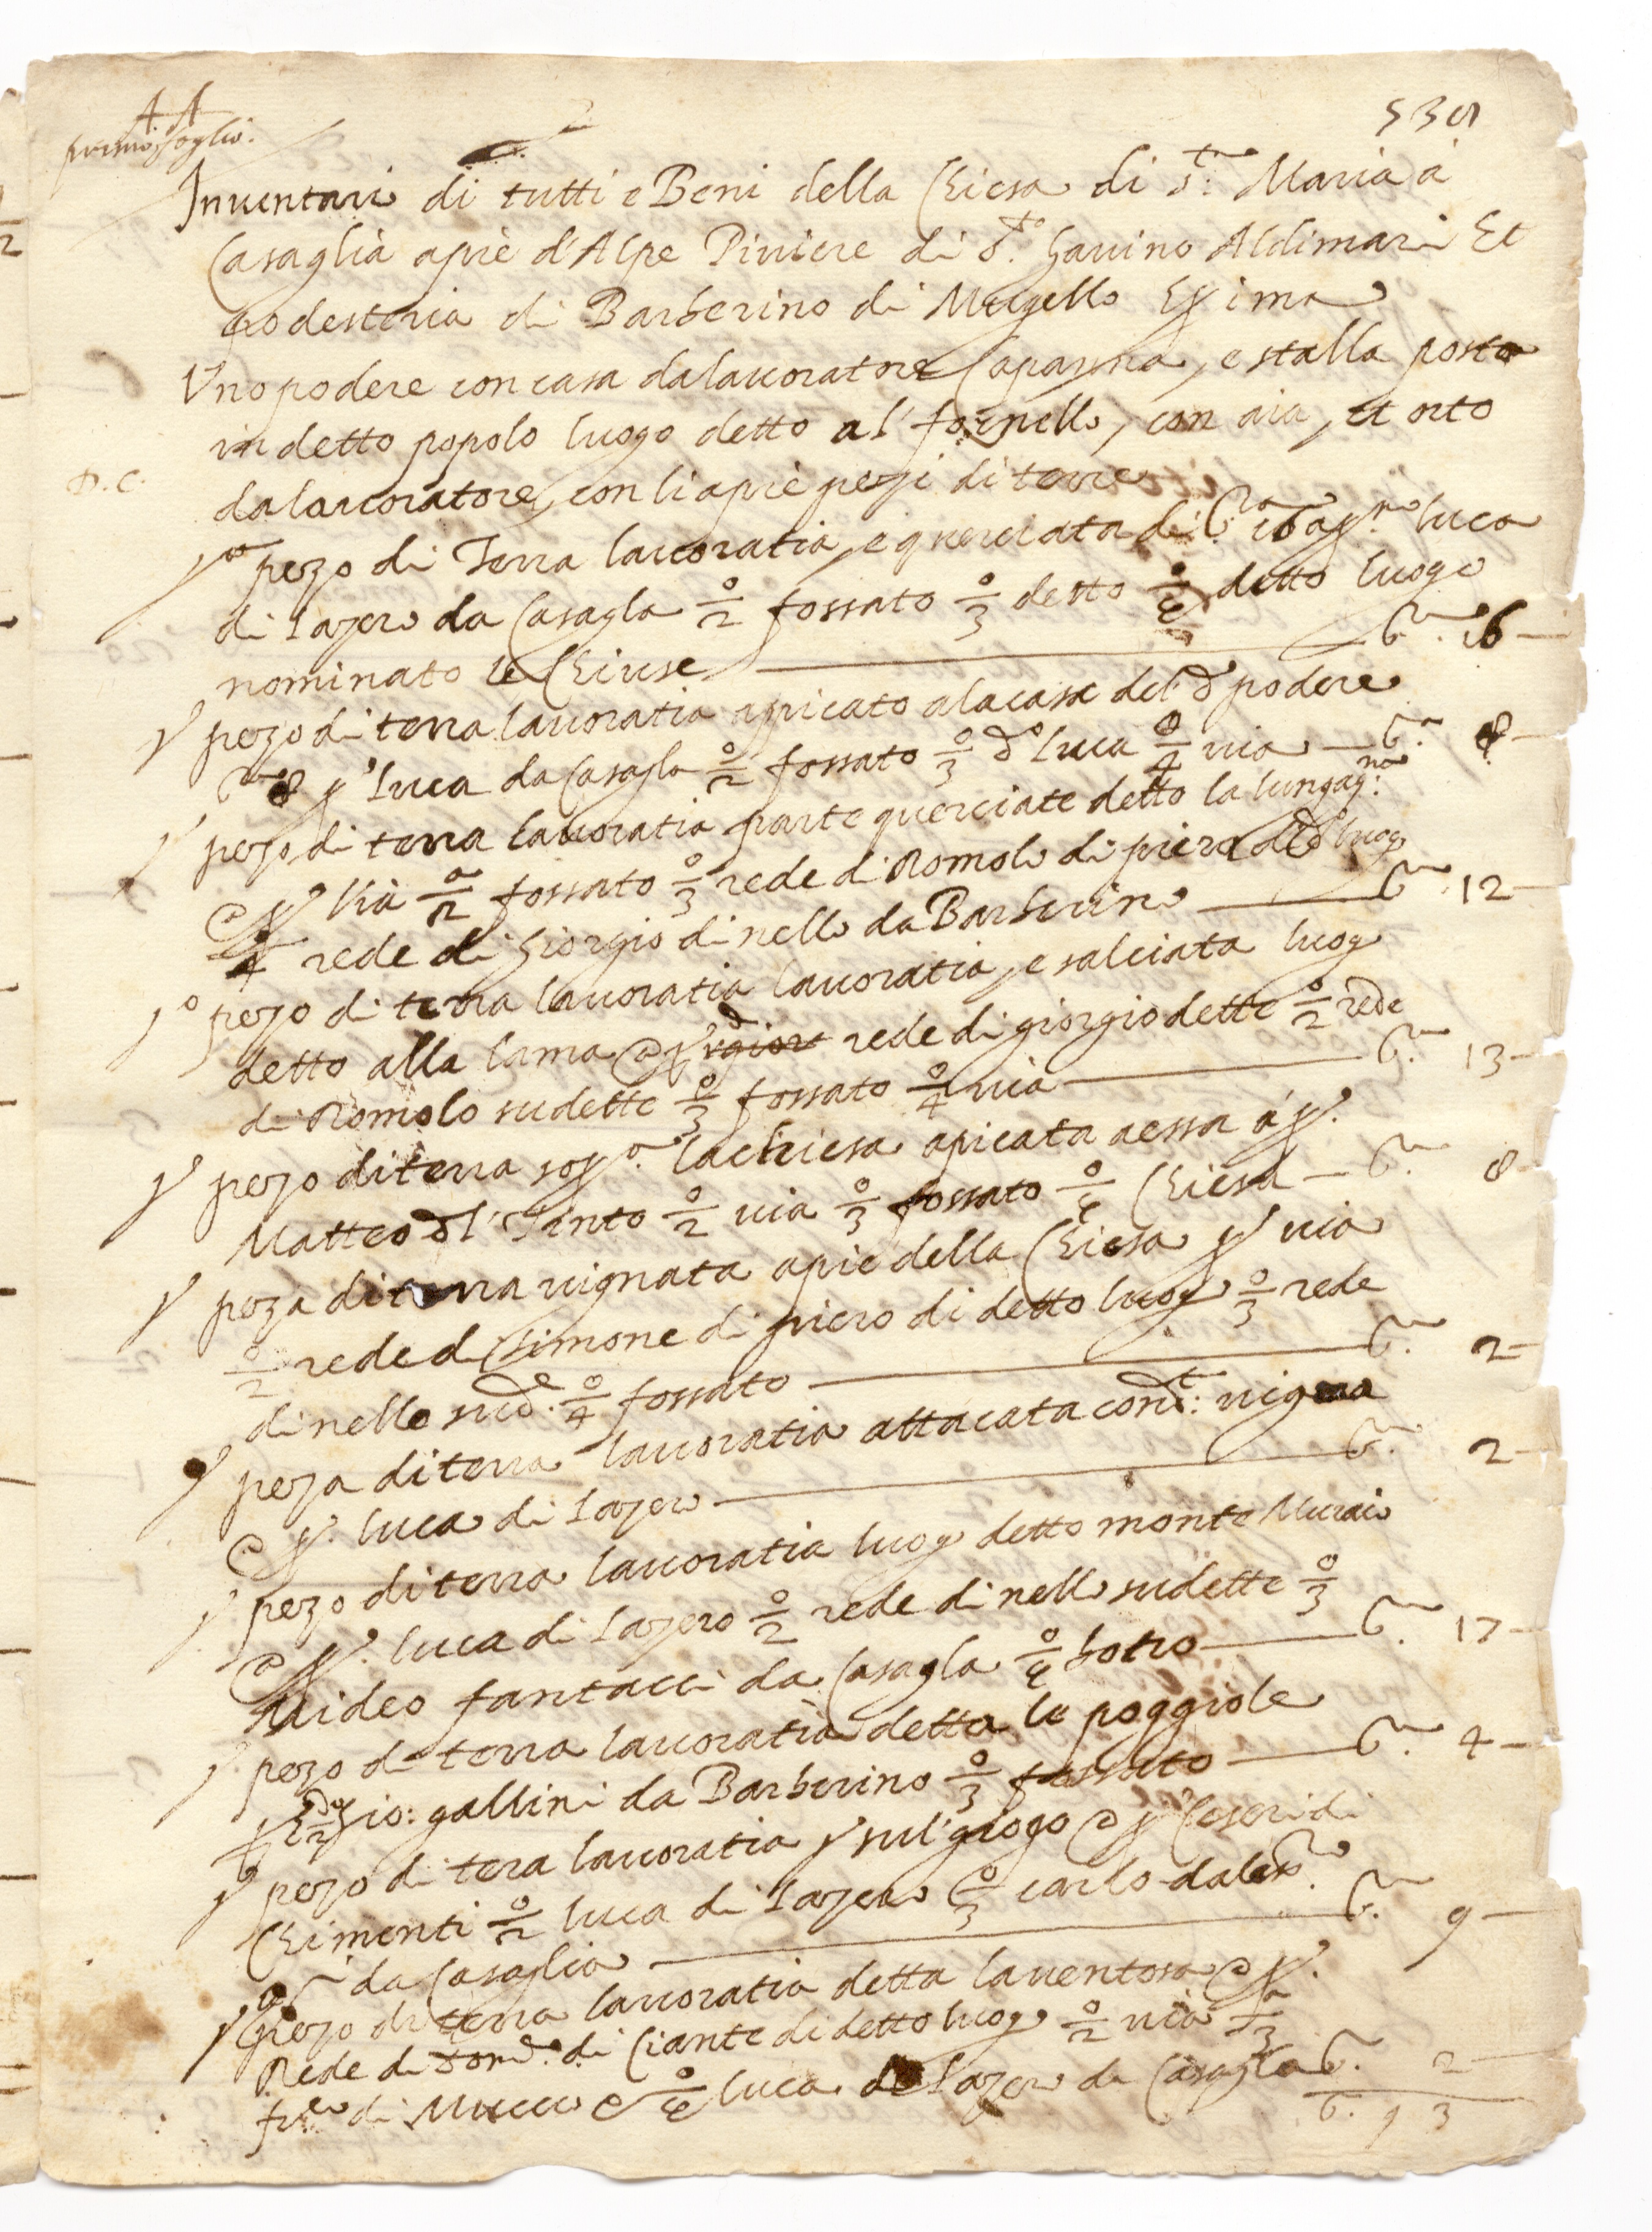 A A
primo foglio.
539
Inventario di tutti e Beni della Chiesa di S.ta Maria à
Casaglia apiè d'Alpe Piviere di S.to Gavino Aldimari Et
podesteria di Barberino di Mugello Et prima
Uno podere con casa da lavoratore Capanna, e stalla posto
in detto popolo luogo detto al' fornello, con aia, et orto
D. C.
da lavoratore, con li apiè pezzi di terre
po pezo di Terra lavoratia, e querciata di sta 16 a po luca
di lazero da Casagla o/2 fossato o/3 detto o/4 detto luogo
nominato le Chiuse — sta 16 —
po pezo di terra lavoratia apicato alacasa del do podere
sta 8 po luca da Casagla o/2 fossato o/3 do luca o/4 via — sta 8 —
po pezo di terra lavoratia parte querciate detto la lungagna:
a po Via o/2 fossato o/3 rede di Romolo di piero do luogo
o/4 rede di Giorgio di nello da Barberino — sta 12 —
po pezo di terra lavoratia lavoratia, e salciata luogo
detto alla lama a po rede di giorgio dette o/2 rede
di Romolo sudette o/3 fossato o/4 via — sta 13 —
po pezo di terra sopa la chiesa apicata aessa á po
Matteo del Santo o/2 via o/3 fossato o/4 Chiesa — sta 8 —
po peza di terra vignata apie della Chiesa po via
o/2 rede di simone di piero di detto luogo o/3 rede
di nello sude. o/4 fossato — sta 2 —
po peza di terra lavoratia attacata con dt: vigna
a po luca di lazero — sta 2 —
po pezo di terra lavoratia luogo detto monte Muraio
a po luca di lazero o/2 rede di nello sudette o/3
Mideo fantacci da Casagla o/4 botro — sta 17 —
po pezo di terra lavoratia detta le poggiole
po E o/2 Gio: gallini da Barberino o/3 fossato — sta 4 —
po pezo di tera lavoratia po sul' giogo a po Ceseri di
Chimenti o/2 luca di lazero o/3 carlo
da Casaglia — sta 9 —
po pezo di terra lavoratia detta la ventosa a po
Rede di Domo. di Ciante di detto luogo o/2 via o/3
di Mucci e o/4 luca di lazero da Casagla sta 2 —
sta 93